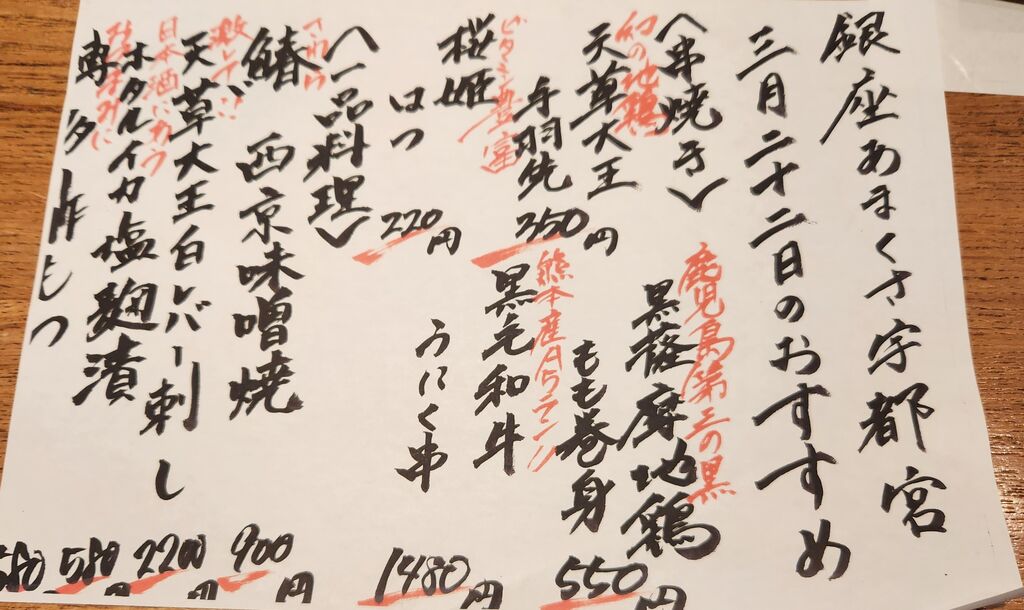 銀座あまくさ宇都宮
三月二十二日のおすすめ
〈串焼き〉
幻の地鶏
天草大王
手羽先
350円
鹿児島第三の黒
黒薩摩地鶏
もも巻身
550円
ビタミン豊富
桜姫
ロつ
220円
熊本産A5ランク
黒毛和牛
うにく串
1480円
〈一品料理〉
さわら
鰆 西京味噌焼
900円
激レア!!
天草大王白レバー刺し
2200円
日本酒にあう
ホタルイカ塩麹漬
580円
580